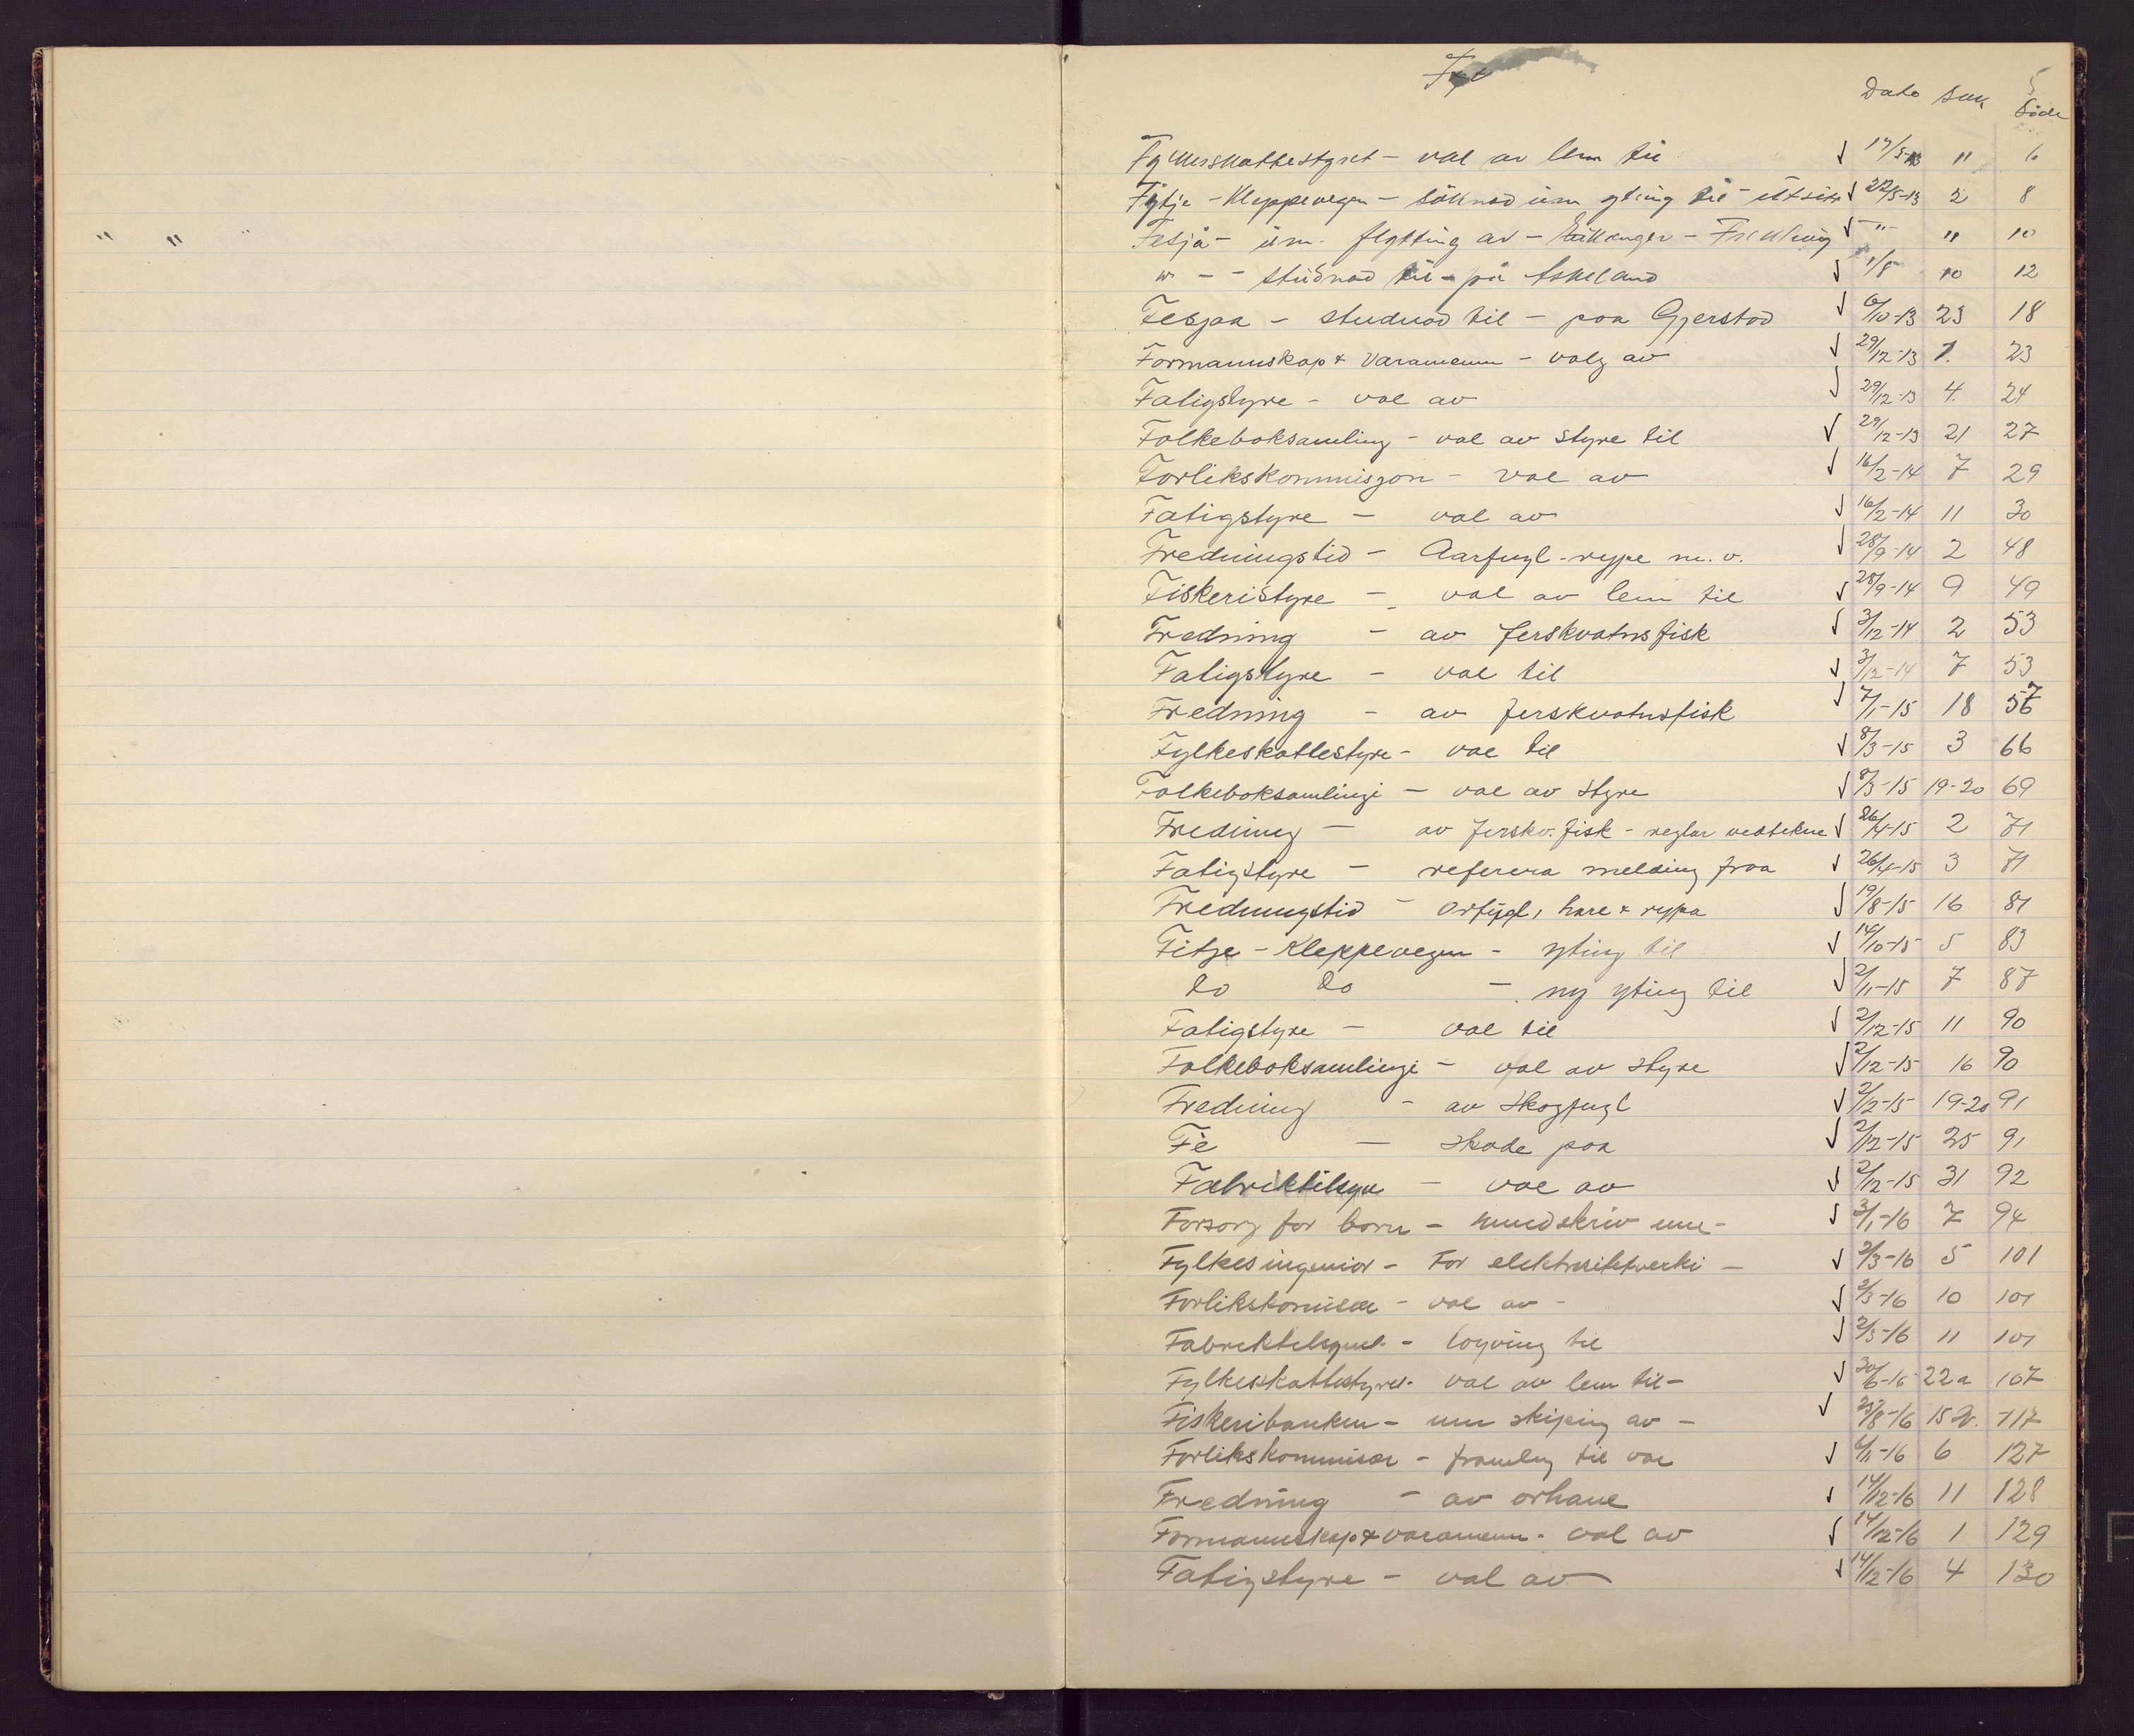 " "
5
Dato Sak Side
Fylkesskattestyret - val av lem til √ 17/5-13 " 6
Fitje - Kleppevegen - søknad um yting til √ 22/5-13 2 8
Fesjå - um flytting av - √ " " 10
" - - studnad til - på Askeland √ 1/8 10 12
Fesjaa - studnad til - paa Gjerstad √ 6/10-13 23 18
Formannskap & Varamenn - valg av √ 29/12-13 1. 23
Fatigstyre - val av √ 29/12-13 4. 24
Folkeboksamling - val av styre til √ 29/12-13 21 27
Forlikskommisjon - val av √ 16/2-14 7 29
Fatigstyre - val av √ 16/2-14 11 30
Fredningstid - Aarfugl - rype m.v. √ 28/9-14 2 48
Fiskeristyre - val av lem til √ 28/9-14 9 49
Fredning - av ferskvatnsfisk √ 3/12-14 2 53
Fatigstyre - val til √ 3/12-14 7 53
Fredning - av ferskvatnsfisk √ 7/1-15 18 57
Fylkeskattestyre - val til √ 8/3-15 3 66
Folkeboksamlingi - val av styre √ 8/3-15 19-20 69
Fredning - av ferskv.fisk - reglar vedtekne √ 26/4-15 2 71
Fatigstyre - referera melding fraa √ 26/4-15 3 71
Fredningstid - orfugl, hare & rypa √ 19/8-15 16 81
Fitje - Kleppevegen - yting til √ 14/10-15 5 83
do do - ny yting til √ 2/11-15 7 87
Fatigstyre - val til √ 2/12-15 11 90
Folkeboksamlingi - val av styre √ 2/12-15 16 90
Fredning - av skogfugl √ 2/12-15 19-20 91
Fè - skade paa √ 2/12-15 25 91
Fabriktilsyn - val av √ 2/12-15 31 92
Forsorg for born - rundskriv um - √ 3/1-16 7 94
Fylkesingeniør - for elektrisitetverki - √ 2/3-16 5 101
Forlikskommisær - val av - √ 2/3-16 10 101
Fabriktilsynet - løyving til √ 2/3-16 11 101
Fylkesskattestyret - val av lem til - √ 30/6-16 22a 107
Fiskeribanken - um skiping av - √ 25/8-16 15 117
Forlikskommisær - framlegg til val √ 6/11-16 6 127
Fredning - av orhane √ 14/12-16 11 128
Formannskap & varamenn - val av √ 14/12-16 1 129
Fatigstyre - val av √ 14/12-16 4 130